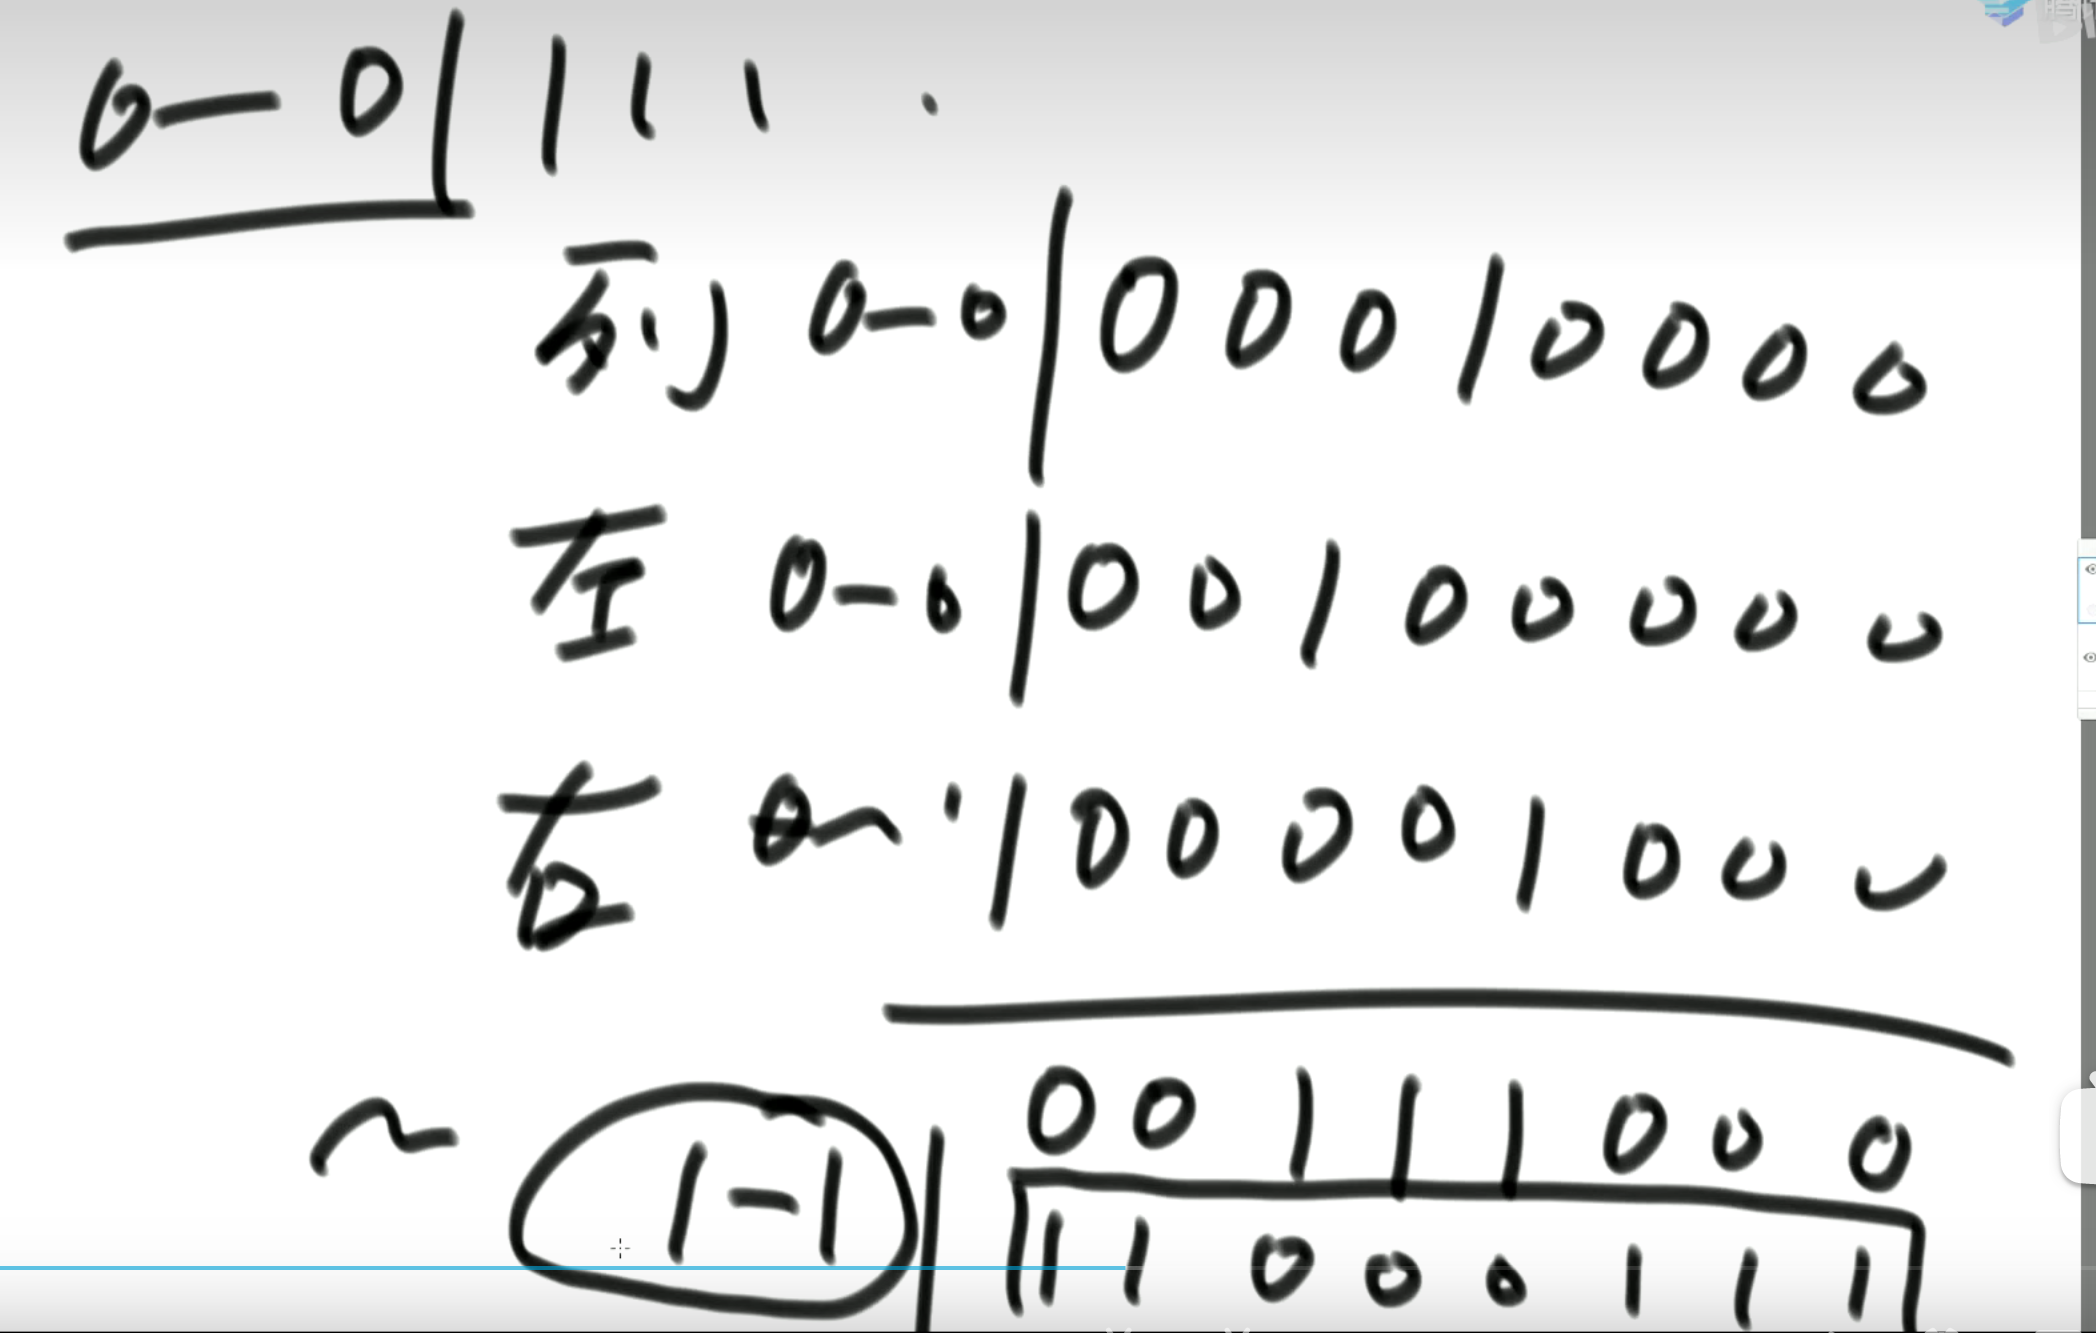 0—0| 1 1 1 .
列 0—0| 0 0 0 1 0 0 0 0
左 0—0| 0 0 1 0 0 0 0 0
右 0~| 0 0 0 0 1 0 0 0
0 0 1 1 1 0 0 0
~ 1—1| 1 1 0 0 0 1 1 1